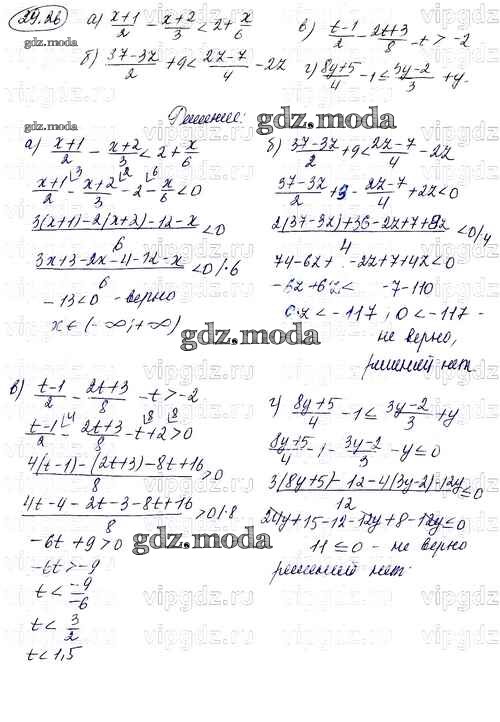 29.26
а) x+1/2 - x+2/3 < 2 + x/6
в) t-1/2 - 2t+3/8 - t > -2
б) 37-3z/2 + 9 < 2z-7/4 - 2z
г) 8y+5/4 - 1 ≤ 3y-2/3 + y.
gdz.moda
Решение:
gdz.moda
а) x+1/2 - x+2/3 < 2 + x/6
x+1/2 - x+2/3 - 2 - x/6 < 0
3(x+1)-2(x+2)-12-x/6 < 0
3x+3-2x-4-12-x/6 < 0 /·6
-13<0 - верно
x ∈ (-∞; +∞)
gdz.moda
б) 37-3z/2 + 9 < 2z-7/4 - 2z
37-3z/2 + 9 - 2z-7/4 + 2z < 0
2(37-3z)+36-2z+7+8z/4 < 0 /·4
74-6z+ -2z+7+4z<0
-6z+6z< -7-110
0z < -117 ; 0 < -117 -
не верно,
решений нет.
в) t-1/2 - 2t+3/8 - t > -2
t-1/2 - 2t+3/8 - t + 2 > 0
4(t-1)-(2t+3)-8t+16/8 > 0
4t-4-2t-3-8t+16/8 > 0 /·8
-6t +9 > 0
-6t > -9
t < -9/-6
t < 3/2
t < 1,5
г) 8y+5/4 - 1 ≤ 3y-2/3 + y
8y+5/4 - 1 - 3y-2/3 - y ≤ 0
3(8y+5)-12-4(3y-2)-12y/12 ≤ 0
24y+15-12-12y+8-12y ≤ 0
11 ≤ 0 - не верно
решений нет.
gdz.moda